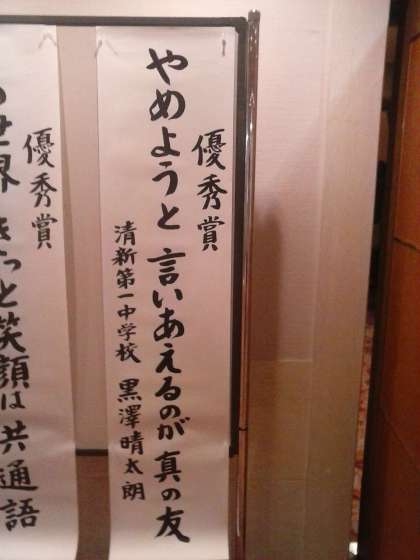 優秀賞
やめようと 言いあえるのが 真の友
清新第一中学校 黒澤晴太朗
優秀賞
世界 きっと笑顔は 共通語